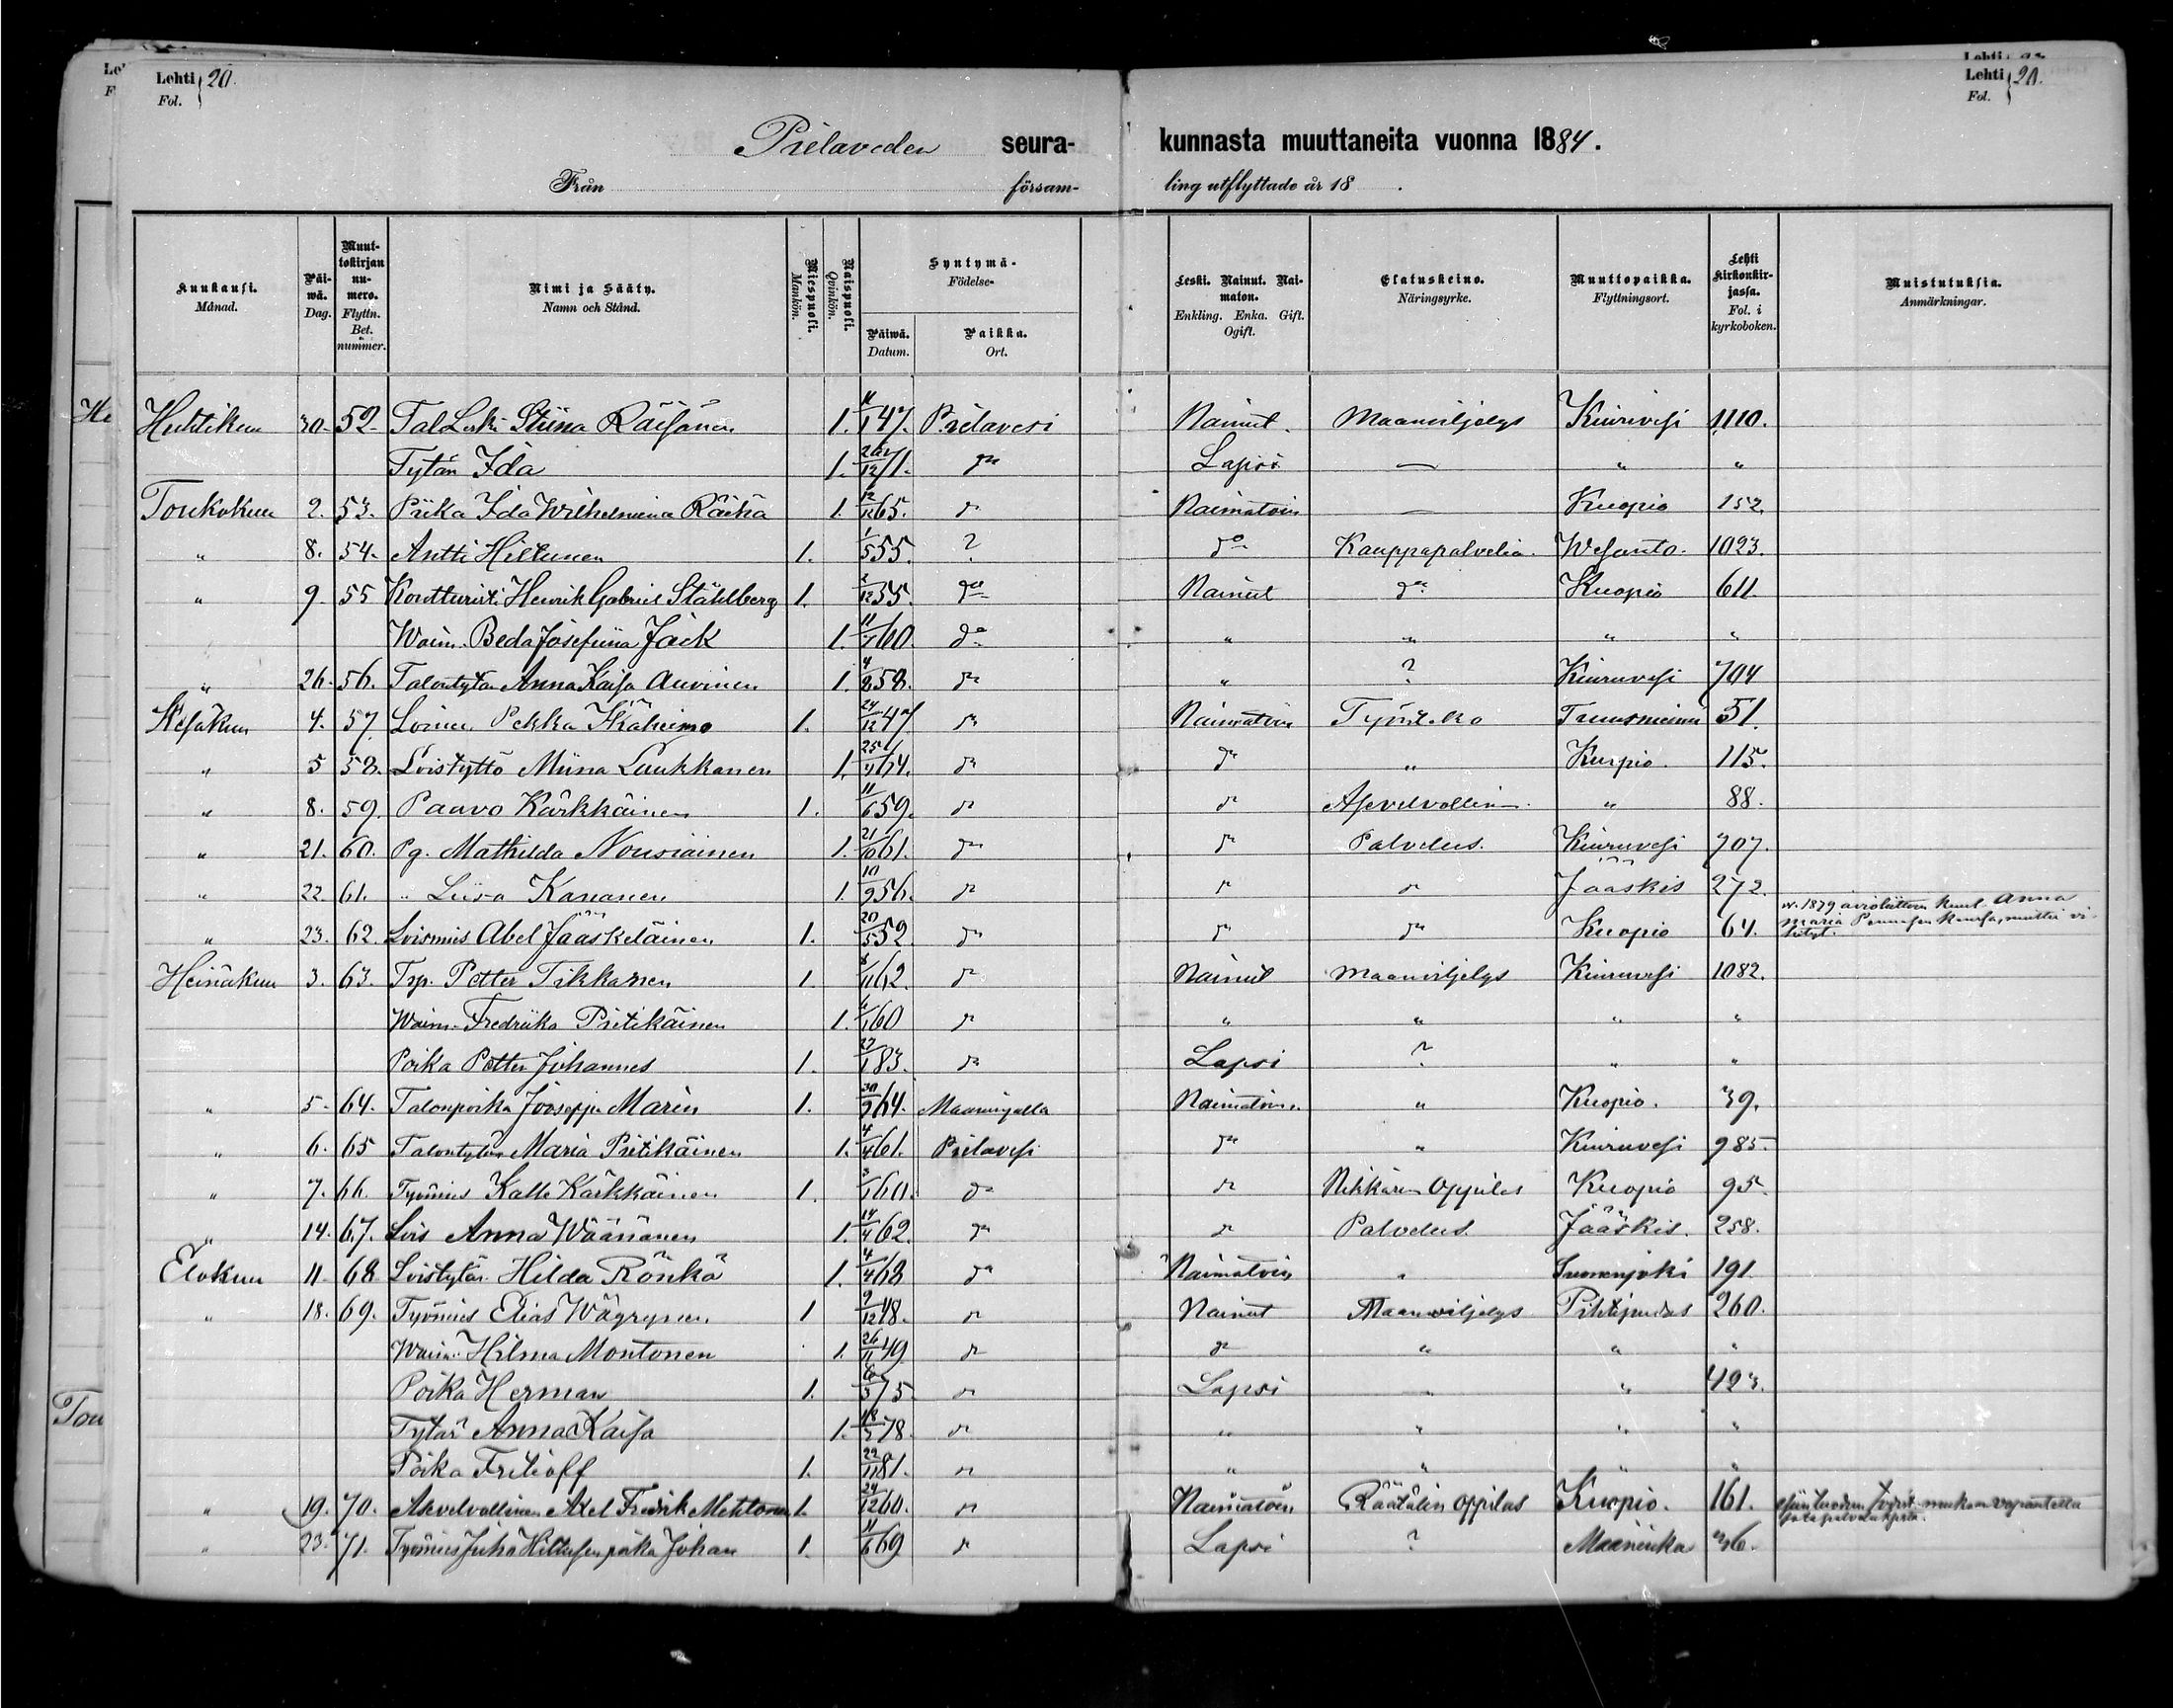 Lehti 20.
Fol.
Lehti 20.
Fol.
Pielaveden seura- kunnasta muuttaneita vuonna 1884.
Från försam- ling utflyttade år 18 .
Kuukausi. Månad.
Päiwä. Dag.
Muuttokirjan numero. Flyttn. Bet. nummer.
Nimi ja Sääty. Namn och Stånd.
Miespuoli. Mankön.
Naispuoli. Qvinkön.
Syntymä- Födelse-
Päiwä. Datum.
Paikka. Ort.
Leski. Nainut. Naimaton. Enkling. Enka. Gift. Ogift.
Elatuskeino. Näringsyrke.
Muuttopaikka. Flyttningsort.
Lehti kirkonkirjassa. Fol. i kyrkoboken.
Muistutuksia. Anmärkningar.
Huhtikuu 30. 52. Tal Leski Stiina Räisänen 1. 11/1 47. Pielavesi Nainut. Maanviljelys Kiurivesi 1110.
Tytär Ida 1. 12 71. do Lapsi — " "
Toukokuu 2. 53. Piika Ida Wilhelmiina Räihä 1. 12/12 65. do Naimatoin — Kuopio 152.
" 8. 54. Antti Hiltunen 1. 1/5 55. ? do Kauppapalvelia. Wesanto. 1023.
" 9. 55 Kontturisti Henrik Gabriel Ståhlberg 1. 2/12 55. do Nainut do Kuopio 611.
Waim. Beda Josefiina Jäck 1. 11/1 60. do " " " "
" 26. 56. Talontytär Anna Kaisa Auvinen 1. 4/8 58. do " ? Kiuruvesi 704
Kesäkuu 4. 57. Loimies Pekka Ikäheimo 1. 24/12 47. do Naimatoin Työnteko Tuusniemi 51.
" 5 58. Loistyttö Miina Laukkanen 1. 25/4 64. do do " Kuopio. 115.
" 8. 59. Paavo Kärkkäinen 1. 11/6 59. do do Asevelvollinen. " 88.
" 21. 60. Pg. Mathilda Nousiainen 1. 21/10 61. do do Palvelus. Kiuruvesi 707.
" 22. 61. " Liisa Kananen 1. 10/9 56. do do do Jääskis 272.
v. 1879 avioliittoon kuul. Anna
Maria
" 23. 62. Loismies Abel Jääskeläinen 1. 20/5 52. do do do Kuopio 64.
Heinäkuu 3. 63. Tsp. Petter Tikkanen 1. 8/11 62. do Nainut Maanviljelys Kiuruvesi 1082.
Waim. Fredriika Pietikäinen 1. 6/1 60 do " " " "
Poika Petter Johannes 1. 27/1 83. do Lapsi ? " "
" 5. 64. Talonpoika Jooseppi Marin 1. 30/9 64. Maaningalla Naimatoin. " Kuopio. 39.
" 6. 65 Talontytär Maria Pietikäinen 1. 4/4 61. Pielavesi do " Kiuruvesi 985.
" 7. 66. Työmies Kalle Kärkkäinen 1. 3/1 60. do do Nikkarin Oppilas Kuopio 95.
" 14. 67. Lois Anna Wäänänen 1. 14/4 62. do do Palvelus. Jääskis. 258.
Elokuu 11. 68 Loistytär Hilda Rönkä 1. 4/4 68 do Naimatoin " Suonenjoki 191.
" 18. 69. Työmies Elias Wäyrynen 1 9/12 48. do Nainut Maanviljelys Pihtipudas 260.
Waim. Hilma Montonen 1. 26/11 49 do do " " "
Poika Herman 1. 6/3 75. do Lapsi " " 423.
Tytär Anna Kaisa 1. 18/3 78. do " " " "
Poika Fritioff 1. 22/11 81. do " " " "
" 19. 70. Asevelvollinen Axel Fredrik Mehtonen 1. 24/12 60. do Naimatoin Räätälin Oppilas Kuopio. 161.
" 23. 71. Työmies Juho Hiltusen poika Johan 1. 11/6 69 do Lapsi ? Maaninka 36.
He
Tou